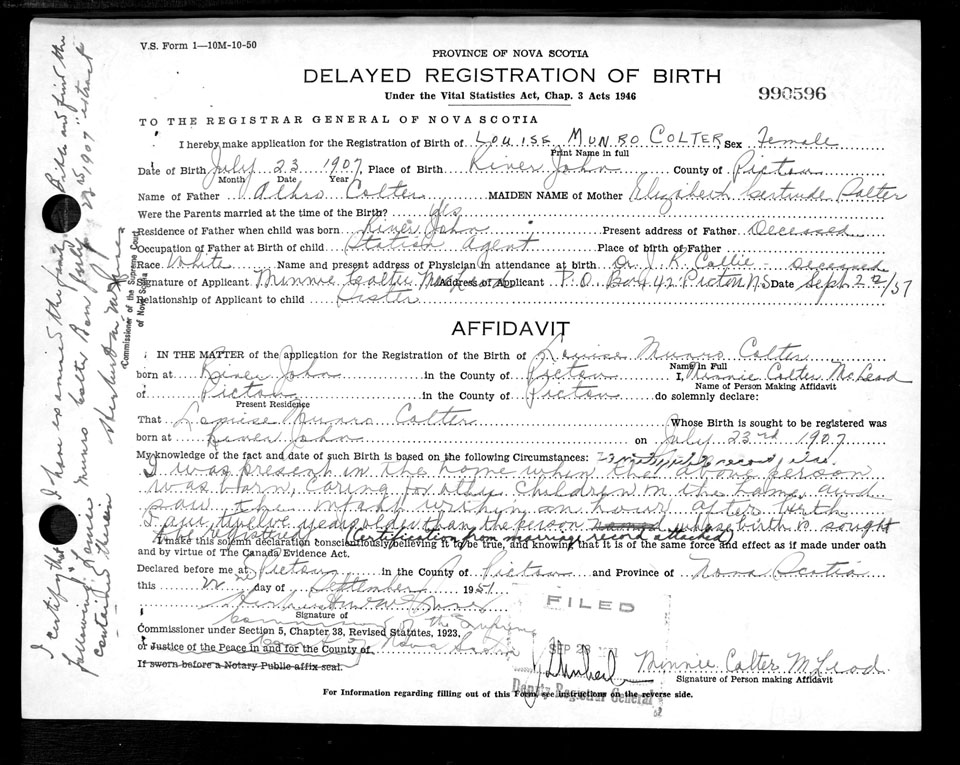 V.S. Form 1—10M-10-50
PROVINCE OF NOVA SCOTIA
DELAYED REGISTRATION OF BIRTH
Under the Vital Statistics Act, Chap. 3 Acts 1946
990596
TO THE REGISTRAR GENERAL OF NOVA SCOTIA
I hereby make application for the Registration of Birth of LOUISE MUNRO COLTER Sex Female
Print Name in full
Date of Birth July 23 1907, Place of Birth River John County of Pictou
Month Date Year
Name of Father Colter MAIDEN NAME of Mother Elizabeth Gertrude Colter
Were the Parents married at the time of the Birth? yes
Residence of Father when child was born River John Present address of Father Deceased
Occupation of Father at Birth of child Station Agent Place of birth of Father
Race White Name and present address of Physician in attendance at birth Dr. J. R. Collie - deceased
Signature of Applicant Minnie Colter McLeod Address of Applicant P.O. Box 42 Pictou NS Date Sept 22/51
Relationship of Applicant to child Sister
AFFIDAVIT
IN THE MATTER of the application for the Registration of the Birth of Louise Munro Colter
Name in Full
born at River John in the County of Pictou I, Minnie Colter McLeod
Name of Person Making Affidavit
of Pictou in the County of Pictou do solemnly declare:
Present Residence
That Louise Munro Colter Whose Birth is sought to be registered was
born at River John on July 23rd 1907
My knowledge of the fact and date of such Birth is based on the following Circumstances: record, also
I was present in the home when the above person
was born, caring for other children in the home, and
saw the infant within an hour after birth.
I am twelve years older than the person whose birth is sought
to be registered. (Certification from marriage record attached)
I make this solemn declaration conscientiously believing it to be true, and knowing that it is of the same force and effect as if made under oath
and by virtue of The Canada Evidence Act.
Declared before me at Pictou in the County of Pictou and Province of Nova Scotia
this 22nd day of September 1951
Signature of
Commissioner of the Supreme
Commissioner under Section 5, Chapter 38, Revised Statutes, 1923,
Court of Nova Scotia
or Justice of the Peace in and for the County of
If sworn before a Notary Public affix seal.
FILED
SEP
Deputy Registrar General
Minnie Colter McLeod
Signature of Person making Affidavit
For Information regarding filling out of this Form, see instructions on the reverse side.
I certify that I have examined the family Bible and find the
following "Louise Munro Colter Born July 23rd, 1907" extract
contained therein
Commissioner of the Supreme Court
of Nova Scotia